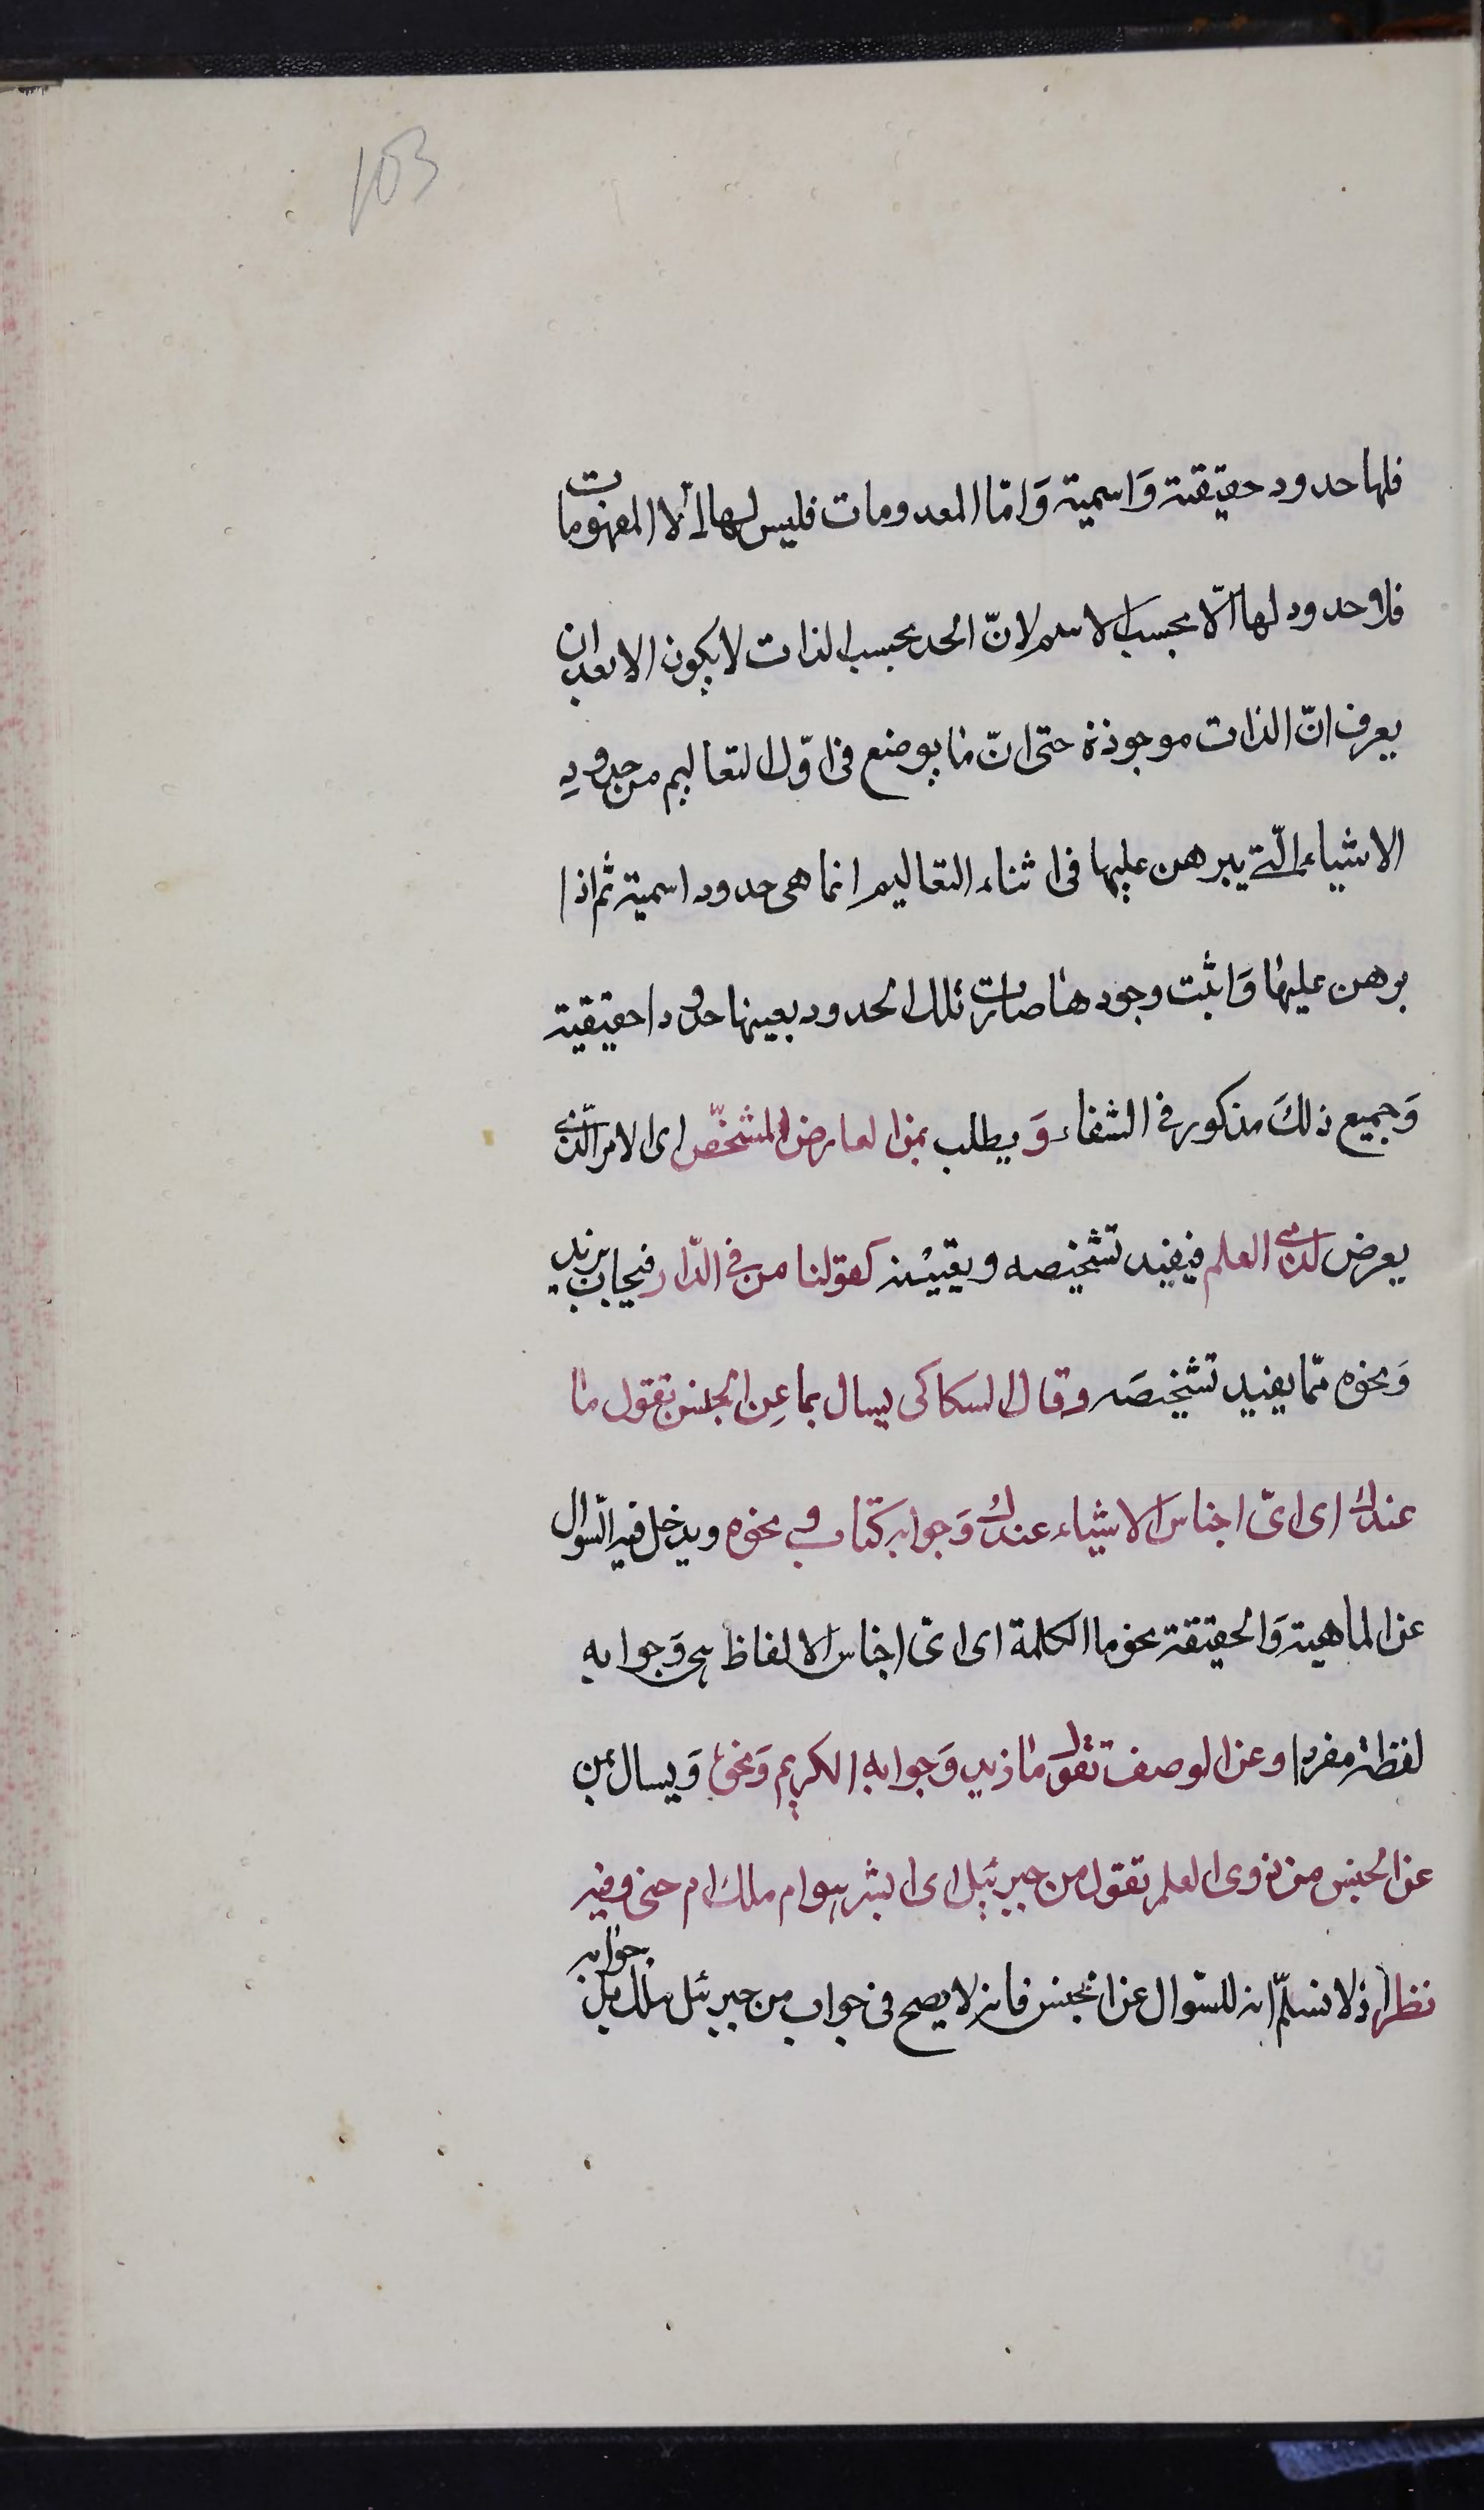 103
فلها حدود حقيقية وَاسمية وَامّا المعدومات فليس لها الا المفهومات
فلا حدود لها الّا بحسب الاسم لانّ الحد بحسب الذات لا يكون الا بعد ان
يعرف انّ الذات موجودة حتى انّ ما يوضع فى اوّل التعاليم من حدودِ
الاشياء الّتى يبرهن عليها فى اثناء التعاليم انما هى حدود اسمية ثم اذا
برهن عليها وَاثبت وجودها صارت تلك الحدود بعينها حدودا حقيقية
وَجميع ذلكَ مذكور فى الشفاء وَيطلب بمن العارض المشخّص اى الامر الّذى
يعرض لذى العلم فيفيد تشخيصه وتعيينه كقولنا من فى الدّار فيجاب بزيد
وَنحوه ممّا يفيد تشخيصَه وقال السكاكى يسال بما عنِ الجنس تقول ما
عندك اى اىّ اجناس الاشياء عندك وَجوابه كتاب و نحوه ويدخل فيه السّوال
عن الماهية وَالحقيقة نحو ما الكلمة اى اىّ اجناس الالفاظ هى وَجوابه
لفظ مفرد وعن الوصف تقول ما زيد وَجوابه الكريم وَنحوه وَيسال بمن
عن الجنس من ذوى العلم تقول من جبرئيل اى ابشر هو ام ملك ام جنى وفيه
نظر اذ لا نسلّم انه للسّوال عن الجنس فانه لا يصح فى جواب من جبرئيل ملك بل
جوابه